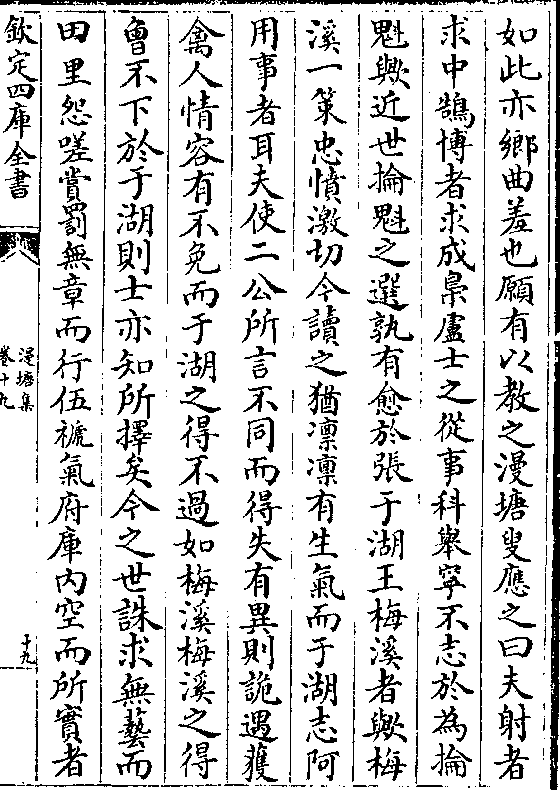 如此亦鄉曲羞也願有以教之漫塘叟應之曰夫射者
求中鵠博者求成梟盧士之從事科舉寧不志於為掄
魁歟近世掄魁之選孰有愈於張于湖王梅溪者歟梅
溪一策忠憤激切今讀之猶凛凛有生氣而于湖志阿
用事者耳夫使二公所言不同而得失有異則詭遇獲
禽人情容有不免而于湖之得不過如梅溪梅溪之得
曾不下於于湖則士亦知所擇矣今之世誅求無藝而
田里怨嗟賞罰無章而行伍褫氣府庫內空而所實者
欽定四庫全書
漫塘集
卷十九
十九